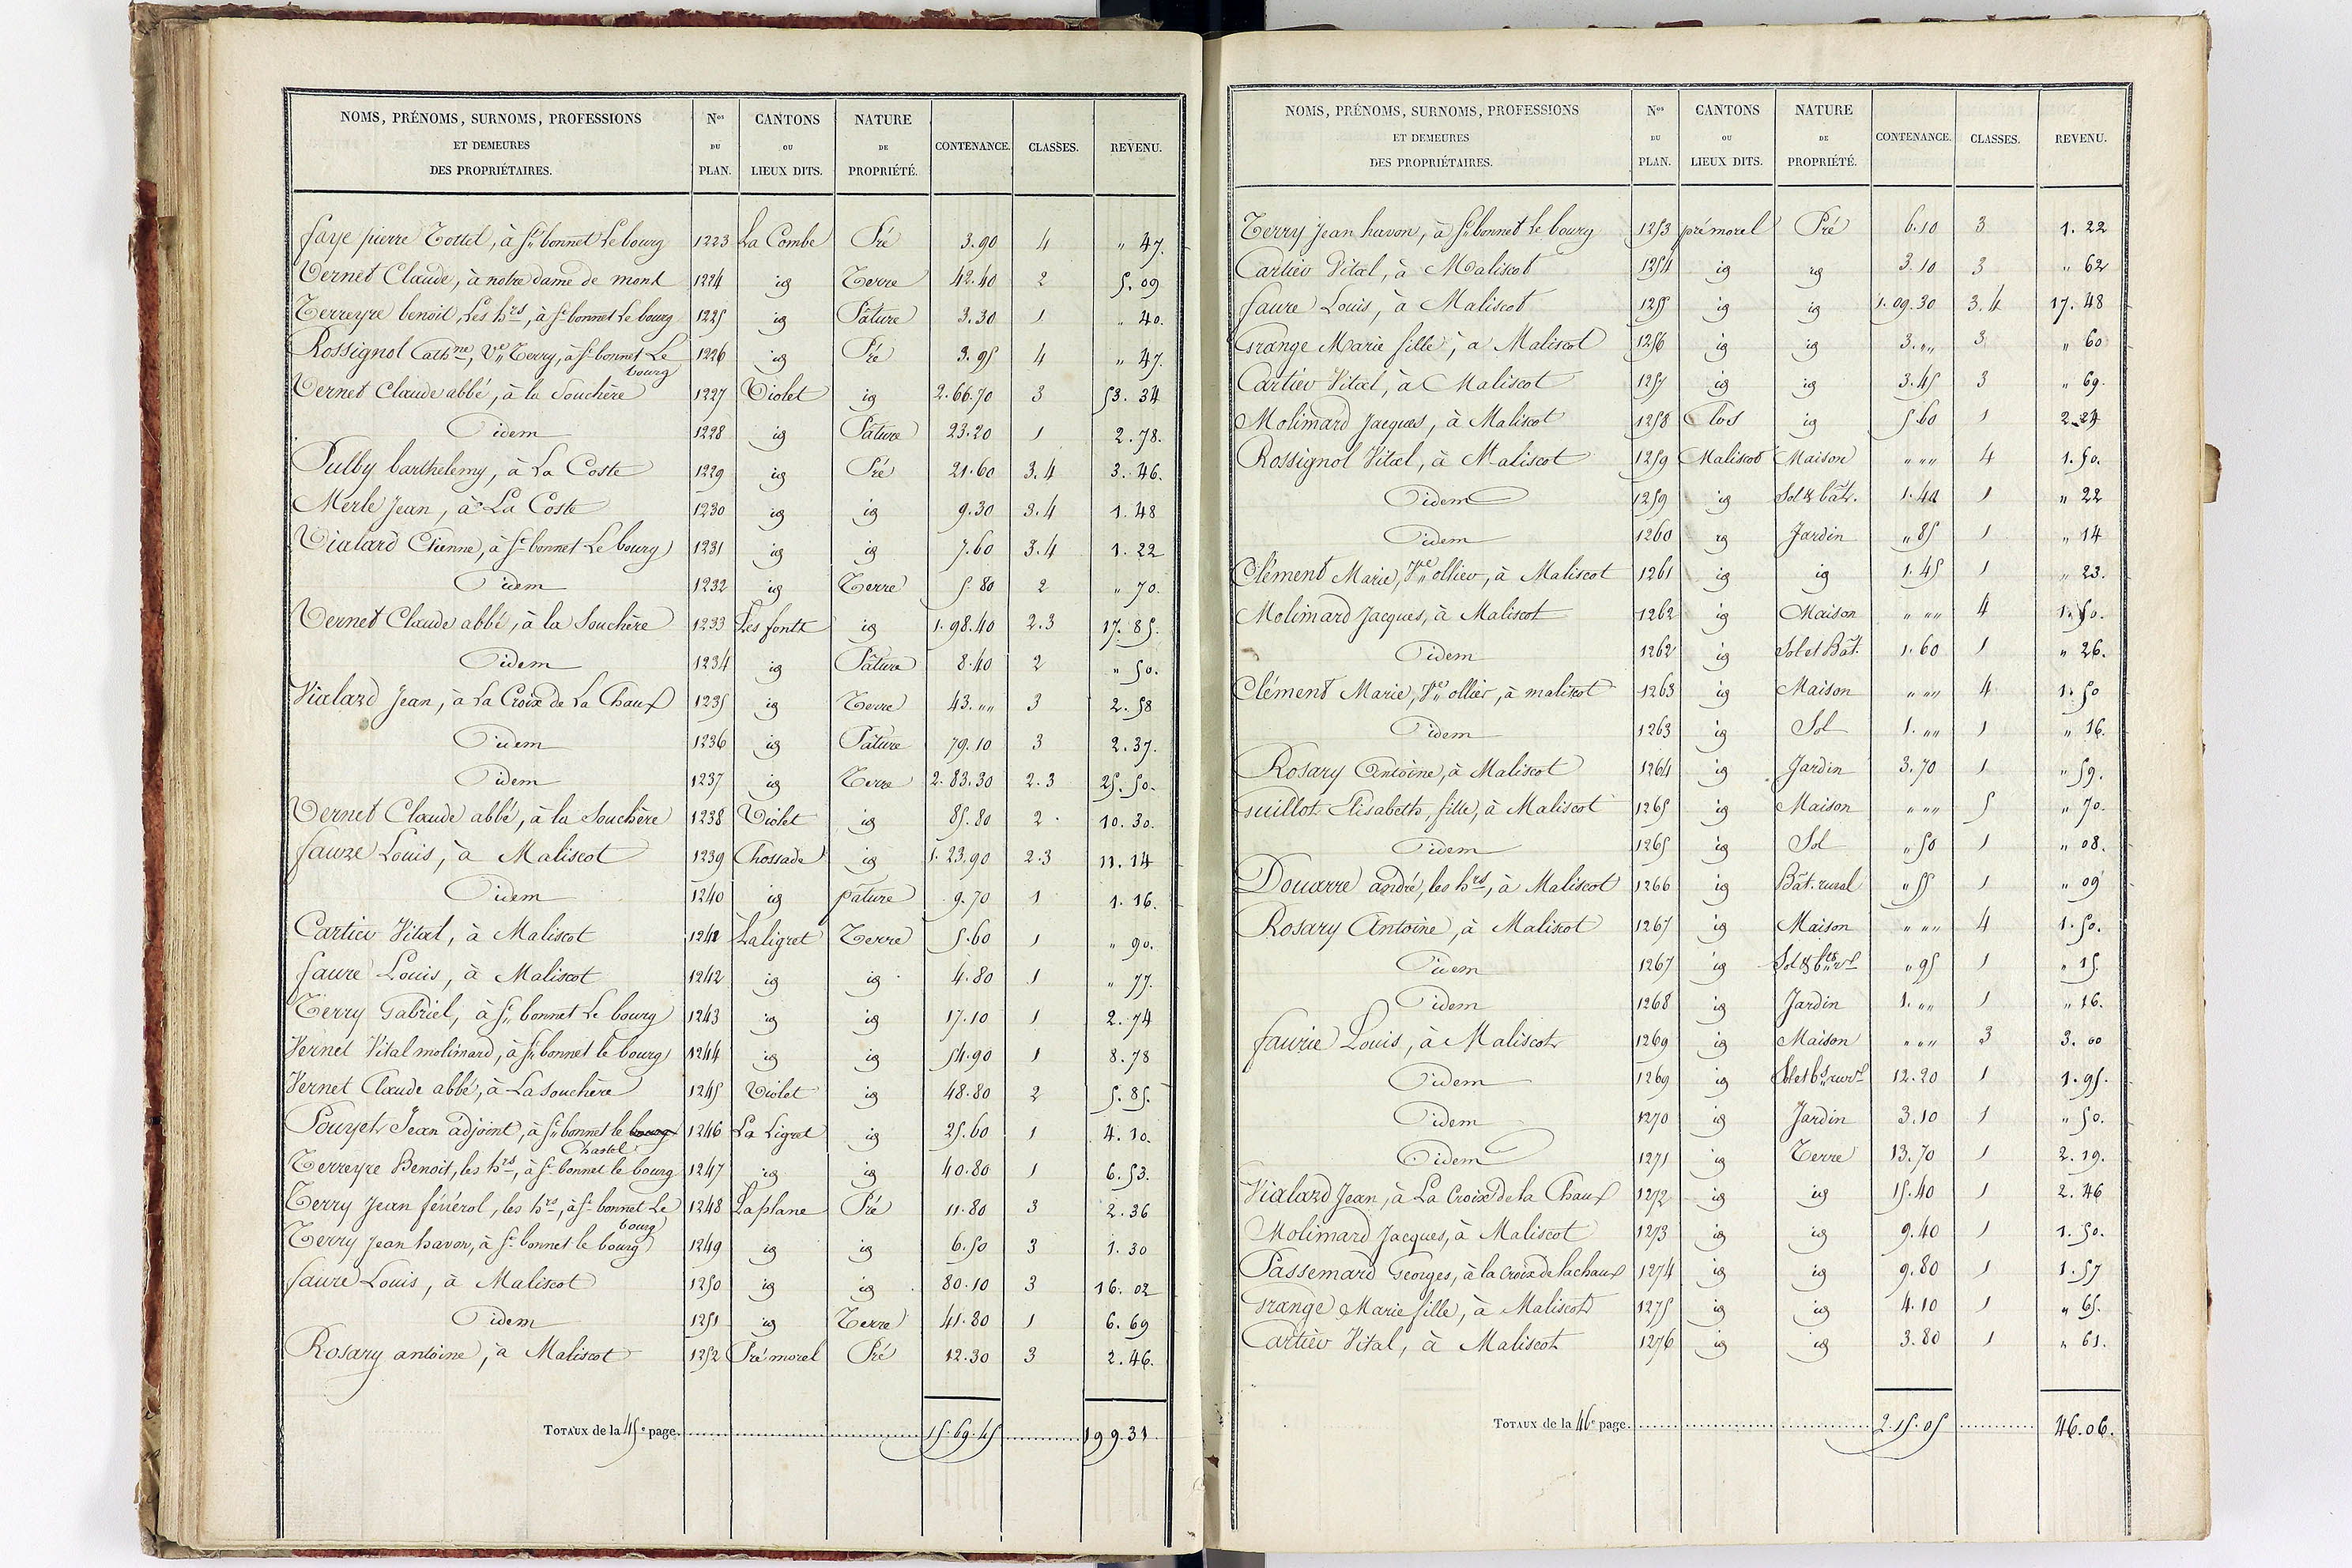 NOMS, PRÉNOMS, SURNOMS, PROFESSIONS ET DEMEURES DES PROPRIÉTAIRES. Nos DU PLAN. CANTONS OU LIEUX DITS. NATURE DE PROPRIÉTÉ. CONTENANCE. CLASSES. REVENU.
faye pierre Tottel, à St bonnet Le bourg 1223 La Combe Pré 3.90 4 " 47.
Vernet Claude, à notre dame de mont 1224 id Terre 42.40 2 5.09
Terreyre benoit, Les hrs, à St bonnet Le bourg 1225 id Pâture 3.30 1 " 40.
Rossignol Cathne, Ve Terry, à St bonnet Le bourg 1226 id Pré 3.95 4 " 47.
Vernet Claude abbé, à la Souchère 1227 Violet id 2.66.70 3 53.34
idem 1228 id Pâture 23.20 1 2.78.
Pulby barthelemy, à La Coste 1229 id Pré 21.60 3.4 3.46.
Merle Jean, à La Coste 1230 id id 9.30 3.4 1.48
Vialard Etienne, à St bonnet Le bourg 1231 id id 7.60 3.4 1.22
idem 1232 id Terre 5.80 2 " 70.
Vernet Claude abbé, à la Souchère 1233 Les fonts id 1.98.40 2.3 17.85.
idem 1234 id Pâture 8.40 2 " 50.
Vialard Jean, à La Croix de La Chaux 1235 id Terre 43. "" 3 2.58
idem 1236 id Pâture 79.10 3 2.37.
idem 1237 id Terre 2.83.30 2.3 25.50.
Vernet Claude abbé, à la Souchère 1238 Violet id 85.80 2 10.30.
faure Louis, à Maliscot 1239 Chossade id 1.23.90 2.3 11.14
idem 1240 id pâture 9.70 1 1.16.
Cartier Vital, à Maliscot 1241 La ligret Terre 5.60 1 " 90.
faure Louis, à Maliscot 1242 id id 4.80 1 " 77.
Terry Gabriel, à St bonnet Le bourg 1243 id id 17.10 1 2.74
Vernet Vital molimard, à St bonnet le bourg 1244 id id 54.90 1 8.78
Vernet Claude abbé, à La souchère 1245 Violet id 48.80 2 5.85.
Pouyet Jean adjoint, à St bonnet le bourg Chastel 1246 La Ligret id 25.60 1 4.10.
Terreyre Benoit, les hrs, à St bonnet le bourg 1247 id id 40.80 1 6.53.
Terry Jean févérol, les hrs, à St bonnet Le bourg 1248 La plane Pré 11.80 3 2.36
Terry Jean havon, à St bonnet le bourg 1249 id id 6.50 3 1.30
faure Louis, à Maliscot 1250 id id 80.10 3 16.02
idem 1251 id Terre 41.80 1 6.69
Rosary antoine, à Maliscot 1252 Pré morel Pré 12.30 3 2.46.
TOTAUX de la 45e page. 15.69.45 199.31
NOMS, PRÉNOMS, SURNOMS, PROFESSIONS ET DEMEURES DES PROPRIÉTAIRES. Nos DU PLAN. CANTONS OU LIEUX DITS. NATURE DE PROPRIÉTÉ. CONTENANCE. CLASSES. REVENU.
Terry Jean havon, à St bonnet le bourg 1253 pré morel Pré 6.10 3 1.22
Cartier Vital, à Maliscot 1254 id id 3.10 3 " 62
faure Louis, à Maliscot 1255 id id 1.09.30 3.4 17.48
Grange Marie fille, à Maliscot 1256 id id 3. "" 3 " 60
Cartier Vital, à Maliscot 1257 id id 3.45 3 " 69.
Molimard Jacques, à Maliscot 1258 Clos id 5.60 1 2.24
Rossignol Vital, à Maliscot 1259 Maliscot Maison " "" 4 1.50.
idem 1259 id Sol & bât. 1.40 1 " 22
idem 1260 id Jardin " 85 1 " 14
Clément Marie, Ve ollier, à Maliscot 1261 id id 1.45 1 " 23.
Molimard Jacques, à Maliscot 1262 id Maison " "" 4 1.50.
idem 1262 id Sol et Bât. 1.60 1 " 26.
Clément Marie, Ve ollier, à maliscot 1263 id Maison " "" 4 1.50
idem 1263 id Sol 1. "" 1 " 16.
Rosary Antoine, à Maliscot 1264 id Jardin 3.70 1 " 59.
Guillot Elisabeth, fille, à Maliscot 1265 id Maison " "" 5 " 70.
idem 1265 id Sol " 50 1 " 08.
Douarre andré, les hrs, à Maliscot 1266 id Bât. rural " 55 1 " 09
Rosary Antoine, à Maliscot 1267 id Maison " "" 4 1.50.
idem 1267 id " 95 1 " 15.
idem 1268 id Jardin 1. "" 1 " 16.
faurie Louis, à Maliscot 1269 id Maison " "" 3 3.00
idem 1269 id Sol et bt rurl 12.20 1 1.95.
idem 1270 id Jardin 3.10 1 " 50.
idem 1271 id Terre 13.70 1 2.19.
Vialard Jean, à La Croix de la Chaux 1272 id id 15.40 1 2.46
Molimard Jacques, à Maliscot 1273 id id 9.40 1 1.50.
Passemard Georges, à la croix de la chaux 1274 id id 9.80 1 1.57
Grange Marie fille, à Maliscot 1275 id id 4.10 1 " 65.
Cartier Vital, à Maliscot 1276 id id 3.80 1 " 61.
TOTAUX de la 46e page. 2.15.05 46.06.